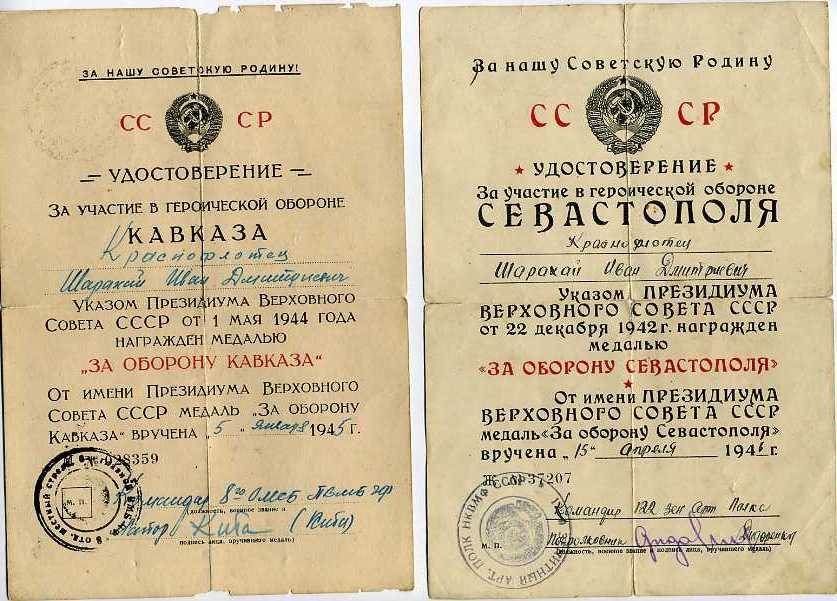 ЗА НАШУ СОВЕТСКУЮ РОДИНУ!
СС СР
УДОСТОВЕРЕНИЕ
ЗА УЧАСТИЕ В ГЕРОИЧЕСКОЙ ОБОРОНЕ
КАВКАЗА
Краснофлотец
Шарахай Иван Дмитриевич
УКАЗОМ ПРЕЗИДИУМА ВЕРХОВНОГО
СОВЕТА СССР ОТ 1 МАЯ 1944 ГОДА
НАГРАЖДЕН МЕДАЛЬЮ
„ЗА ОБОРОНУ КАВКАЗА“
ОТ ИМЕНИ ПРЕЗИДИУМА ВЕРХОВНОГО
СОВЕТА СССР МЕДАЛЬ „ЗА ОБОРОНУ
КАВКАЗА“ ВРУЧЕНА „5 “ января 1945 г.
28359
Командир 8го ОМСБ
(должность, военное звание и
подпись лица, вручившего медаль)
М. П.
За нашу Советскую Родину
СС СР
УДОСТОВЕРЕНИЕ
За участие в героической обороне
СЕВАСТОПОЛЯ
Краснофлотец
Шарахай Иван Дмитриевич
Указом ПРЕЗИДИУМА
ВЕРХОВНОГО СОВЕТА СССР
от 22 декабря 1942 г. награжден
медалью
«ЗА ОБОРОНУ СЕВАСТОПОЛЯ»
От имени ПРЕЗИДИУМА
ВЕРХОВНОГО СОВЕТА СССР
медаль «За оборону Севастополя»
вручена „15“ апреля 1946 г.
37207
Командир 122 зен Арт Полка
Подполковник
М. П.
(должность, военное звание и подпись лица, вручившего медаль)